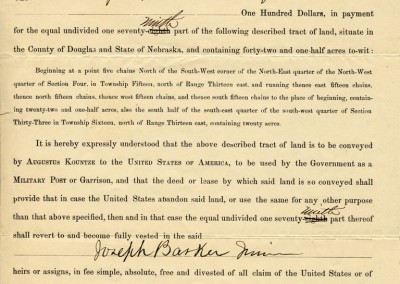 One Hundred Dollars, in payment
ninth
for the equal undivided one seventy-eighth part of the following described tract of land, situate in
the County of Douglas and State of Nebraska, and containing forty-two and one-half acres to-wit:
Beginning at a point five chains North of the South-West corner of the North-East quarter of the North-West
quarter of Section Four, in Township Fifteen, north of Range Thirteen east, and running thence east fifteen chains,
thence north fifteen chains, thence west fifteen chains, and thence south fifteen chains to the place of beginning, contain-
ing twenty-two and one-half acres, also the south half of the south-east quarter of the south-west quarter of Section
Thirty-Three in Township Sixteen, north of Range Thirteen east, containing twenty acres.
It is hereby expressly understood that the above described tract of land is to be conveyed
by Augustus Kountze to the United States of America, to be used by the Government as a
Military Post or Garrison, and that the deed or lease by which said land is so conveyed shall
provide that in case the United States abandon said land, or use the same for any other purpose
ninth
than that above specified, then and in that case the equal undivided one seventy-eighth part thereof
shall revert to and become fully vested in the said
Joseph Barker Junior
heirs or assigns, in fee simple, absolute, free and divested of all claim of the United States or of